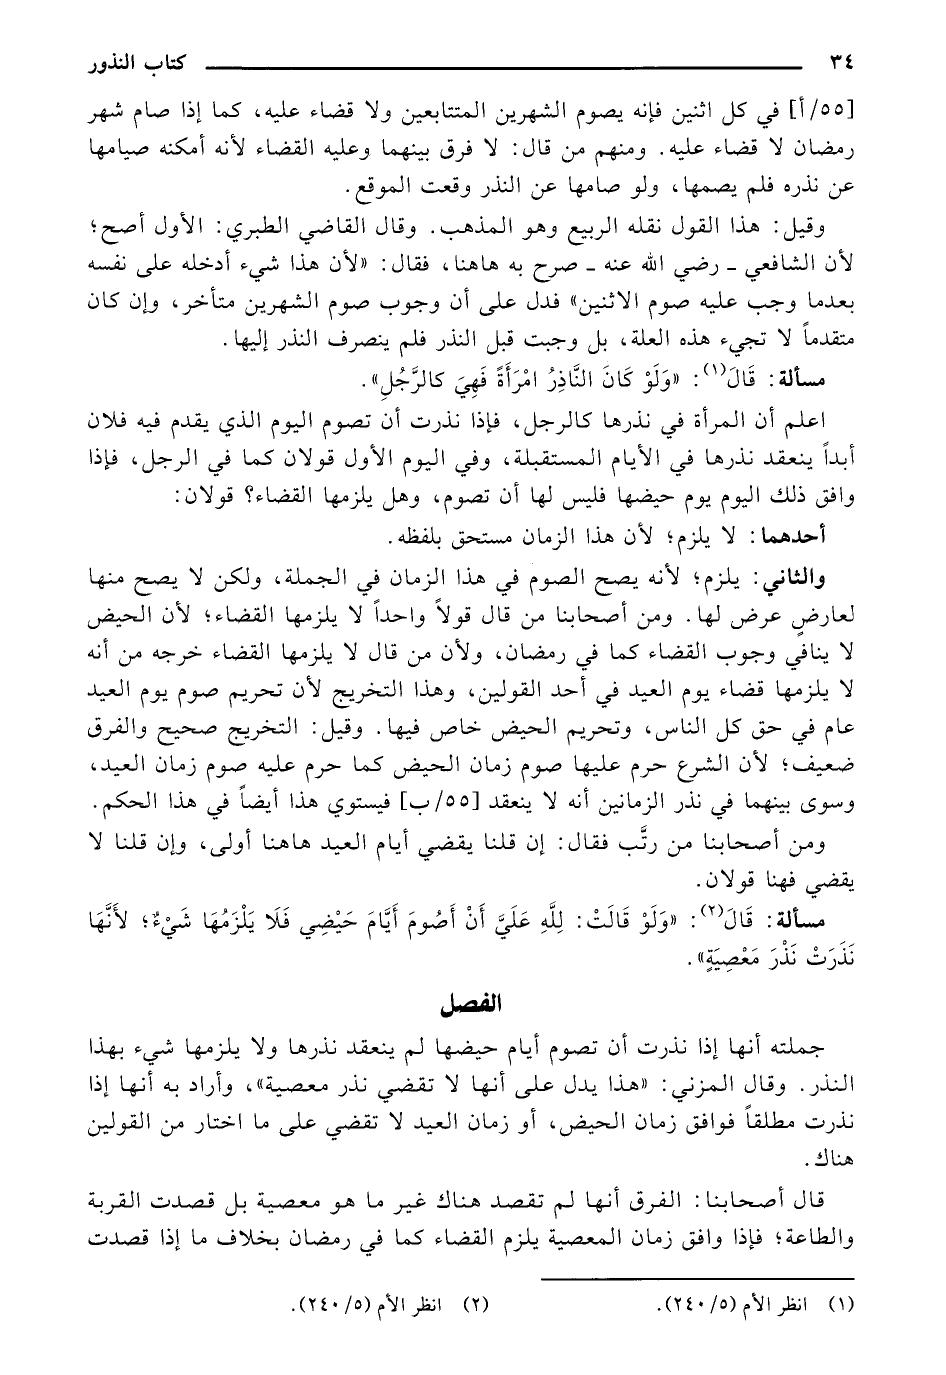 ٣٤ كتاب النذور
[٥٥/أ] في كل اثنين فإنه يصوم الشهرين المتتابعين ولا قضاء عليه، كما إذا صام شهر
رمضان لا قضاء عليه. ومنهم من قال: لا فرق بينهما وعليه القضاء لأنه أمكنه صيامها
عن نذره فلم يصمها، ولو صامها عن النذر وقعت الموقع.
وقيل: هذا القول نقله الربيع وهو المذهب. وقال القاضي الطبري: الأول أصح؛
لأن الشافعي ـ رضي الله عنه ـ صرح به هاهنا، فقال: «لأن هذا شيء أدخله على نفسه
بعدما وجب عليه صوم الاثنين» فدل على أن وجوب صوم الشهرين متأخر، وإن كان
متقدماً لا تجيء هذه العلة، بل وجبت قبل النذر فلم ينصرف النذر إليها.
مسألة: قَالَ(١): «وَلَوْ كَانَ النَّاذِرُ امْرَأَةً فَهِيَ كالرَّجُلِ».
اعلم أن المرأة في نذرها كالرجل، فإذا نذرت أن تصوم اليوم الذي يقدم فيه فلان
أبداً ينعقد نذرها في الأيام المستقبلة، وفي اليوم الأول قولان كما في الرجل، فإذا
وافق ذلك اليوم يوم حيضها فليس لها أن تصوم، وهل يلزمها القضاء؟ قولان:
أحدهما: لا يلزم؛ لأن هذا الزمان مستحق بلفظه.
والثاني: يلزم؛ لأنه يصح الصوم في هذا الزمان في الجملة، ولكن لا يصح منها
لعارضٍ عرض لها. ومن أصحابنا من قال قولاً واحداً لا يلزمها القضاء؛ لأن الحيض
لا ينافي وجوب القضاء كما في رمضان، ولأن من قال لا يلزمها القضاء خرجه من أنه
لا يلزمها قضاء يوم العيد في أحد القولين، وهذا التخريج لأن تحريم صوم يوم العيد
عام في حق كل الناس، وتحريم الحيض خاص فيها. وقيل: التخريج صحيح والفرق
ضعيف؛ لأن الشرع حرم عليها صوم زمان الحيض كما حرم عليه صوم زمان العيد،
وسوى بينهما في نذر الزمانين أنه لا ينعقد [٥٥/ب] فيستوي هذا أيضاً في هذا الحكم.
ومن أصحابنا من رتَّب فقال: إن قلنا يقضي أيام العيد هاهنا أولى، وإن قلنا لا
يقضي فهنا قولان.
مسألة: قَالَ(٢): «وَلَوْ قَالَتْ: لِلَّهِ عَلَيَّ أَنْ أَصُومَ أَيَّامَ حَيْضِي فَلَا يَلْزَمُهَا شَيْءٌ؛ لأَنَّهَا
نَذَرَتْ نَذْرَ مَعْصِيَةٍ».
الفصل
جملته أنها إذا نذرت أن تصوم أيام حيضها لم ينعقد نذرها ولا يلزمها شيء بهذا
النذر. وقال المزني: «هذا يدل على أنها لا تقضي نذر معصية»، وأراد به أنها إذا
نذرت مطلقاً فوافق زمان الحيض، أو زمان العيد لا تقضي على ما اختار من القولين
هناك.
قال أصحابنا: الفرق أنها لم تقصد هناك غير ما هو معصية بل قصدت القربة
والطاعة؛ فإذا وافق زمان المعصية يلزم القضاء كما في رمضان بخلاف ما إذا قصدت
(١) انظر الأم (٥/ ٢٤٠). (٢) انظر الأم (٥/ ٢٤٠).